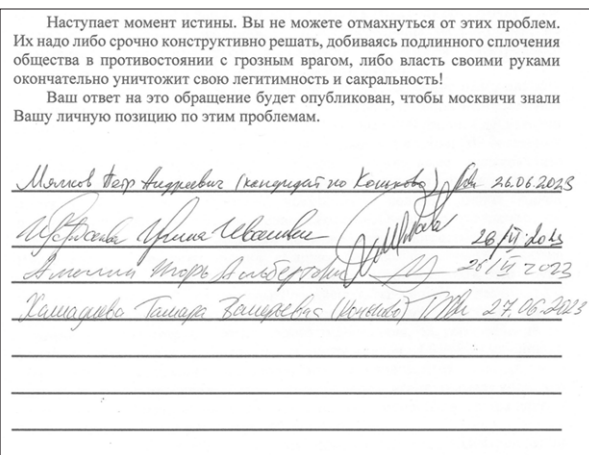 Наступает момент истины. Вы не можете отмахнуться от этих проблем.
Их надо либо срочно конструктивно решать, добиваясь подлинного сплочения
общества в противостоянии с грозным врагом, либо власть своими руками
окончательно уничтожит свою легитимность и сакральность!
Ваш ответ на это обращение будет опубликован, чтобы москвичи знали
Вашу личную позицию по этим проблемам.
Мялков Петр Андреевич (кандидат по Коньково) 26.06.2023
Ирина Ивановна 26/VI 2023
Игорь Альбертович 26/VI 2023
Тамара Валерьевна (Коньково) 27.06.2023